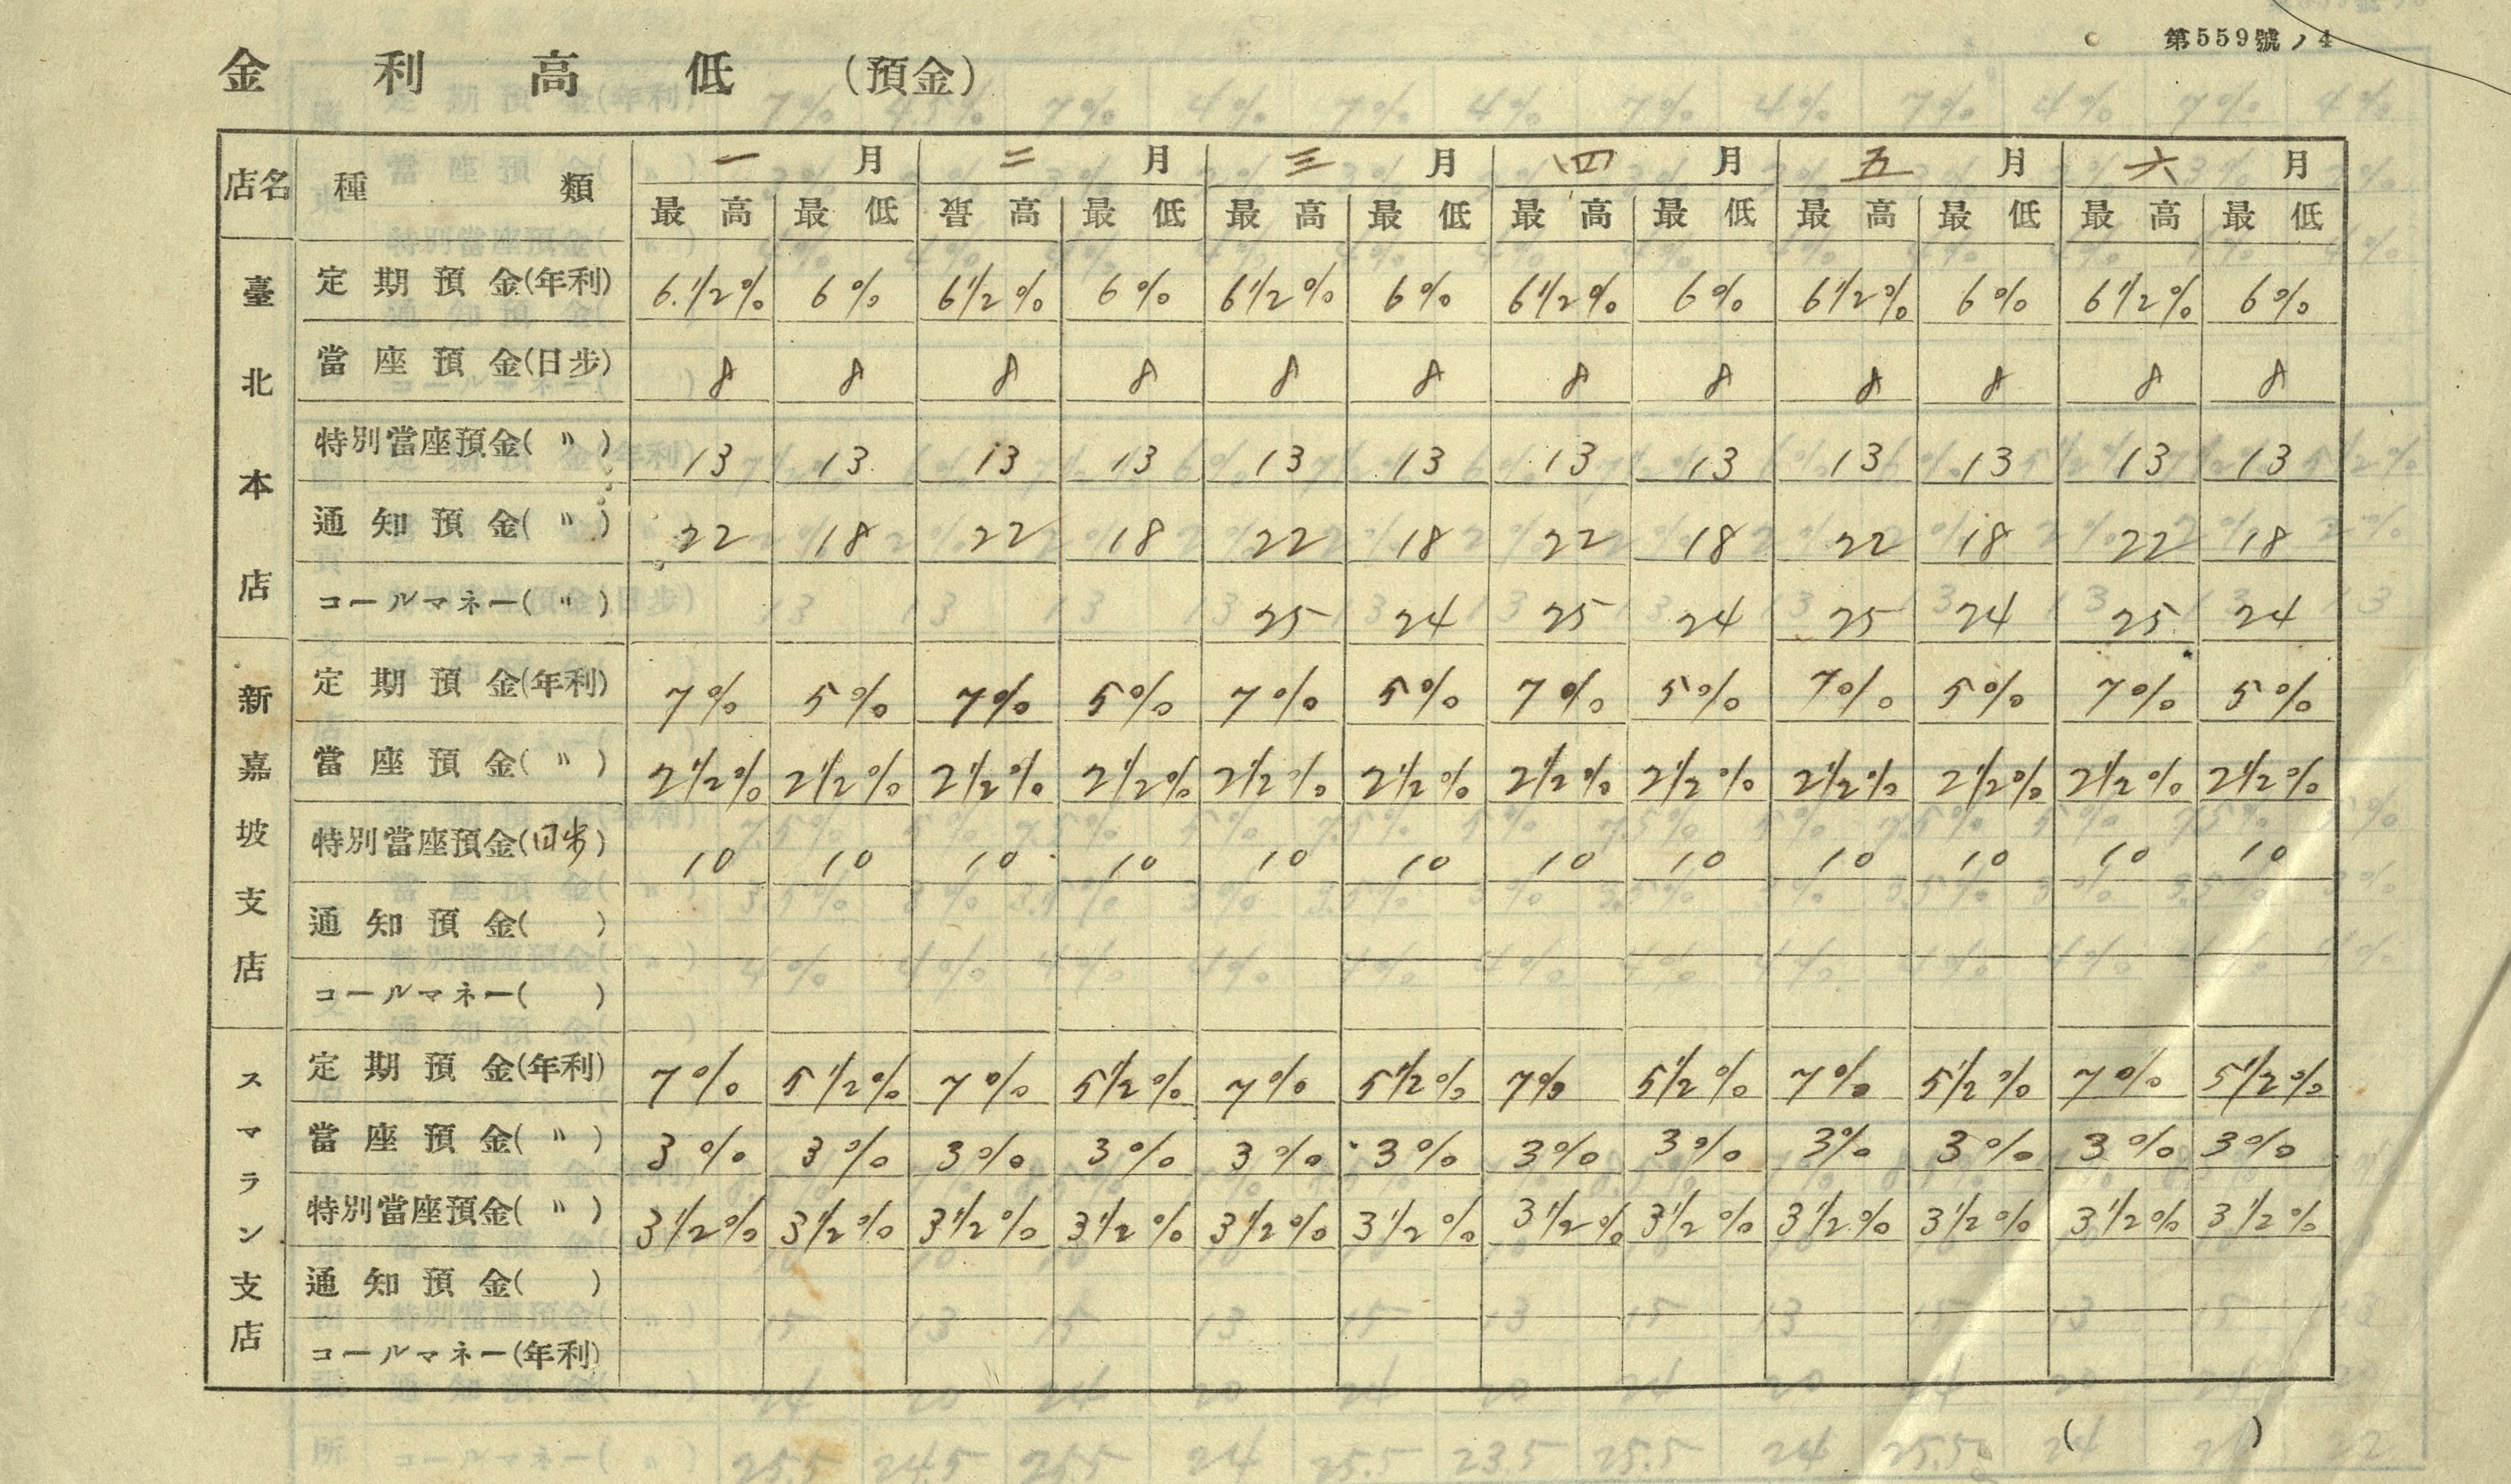 第559號ノ4
金利高低(預金)
店名 種類 一月 二月 三月 四月 五月 六月
最高 最低 最高 最低 最高 最低 最高 最低 最高 最低 最高 最低
臺北本店
定期預金(年利) 6.1/2% 6% 6 1/2% 6% 6 1/2% 6% 6 1/2% 6% 6 1/2% 6% 6 1/2% 6%
當座預金(日步) 8 8 8 8 8 8 8 8 8 8 8 8
特別當座預金(〃) 13 13 13 13 13 13 13 13 13 13 13 13
通知預金(〃) 22 18 22 18 22 18 22 18 22 18 22 18
コールマネー(〃) 25 24 25 24 25 24 25 24
新嘉坡支店
定期預金(年利) 7% 5% 7% 5% 7% 5% 7% 5% 7% 5% 7% 5%
當座預金(〃) 2 1/2% 2 1/2% 2 1/2% 2 1/2% 2 1/2% 2 1/2% 2 1/2% 2 1/2% 2 1/2% 2 1/2% 2 1/2% 2 1/2%
特別當座預金(日步) 10 10 10 10 10 10 10 10 10 10 10 10
通知預金( )
コールマネー( )
スマラン支店
定期預金(年利) 7% 5 1/2% 7% 5 1/2% 7% 5 1/2% 7% 5 1/2% 7% 5 1/2% 7% 5 1/2%
當座預金(〃) 3% 3% 3% 3% 3% 3% 3% 3% 3% 3% 3% 3%
特別當座預金(〃) 3 1/2% 3 1/2% 3 1/2% 3 1/2% 3 1/2% 3 1/2% 3 1/2% 3 1/2% 3 1/2% 3 1/2% 3 1/2% 3 1/2%
通知預金( )
コールマネー(年利)
( )